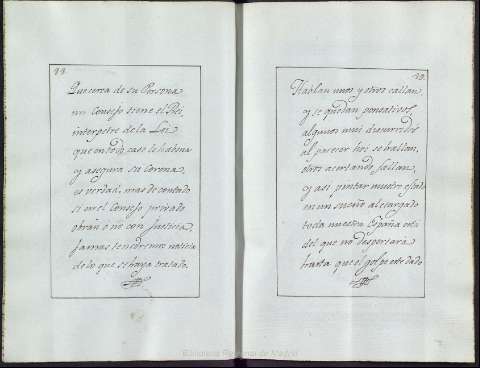 Que cerca de su Persona
un Consejo tiene el Rei,
interprete de la Lei
que en todo caso le habona
y asegura su Corona,
es verdad, mas de contado
si en el Consejo privado
obran ò no con Justicia,
Jamas tendremos noticia
de lo que se haya tratado.
Hablan unos y otros callan,
y se quedan pensativos,
algunos mui discursivos
al parecer hoi se hallan,
otros acertando fallan,
y asi pintar nuestro estado
en un sueño aletargado
toda nuestra España está
del que no despertará
hasta que el golpe esté dado
Biblioteca Regional de Madrid